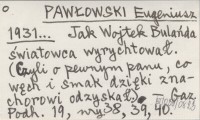 PAWŁOWSKI Eugeniusz
1931... Jak Wojtek Bulanda
światowca wyrychtował.
(Czyli o pewnym panu, co
węch i smak dzięki zna-
chorowi odzyskał). Gaz.
Podh. 19, nry 38, 39, 40.